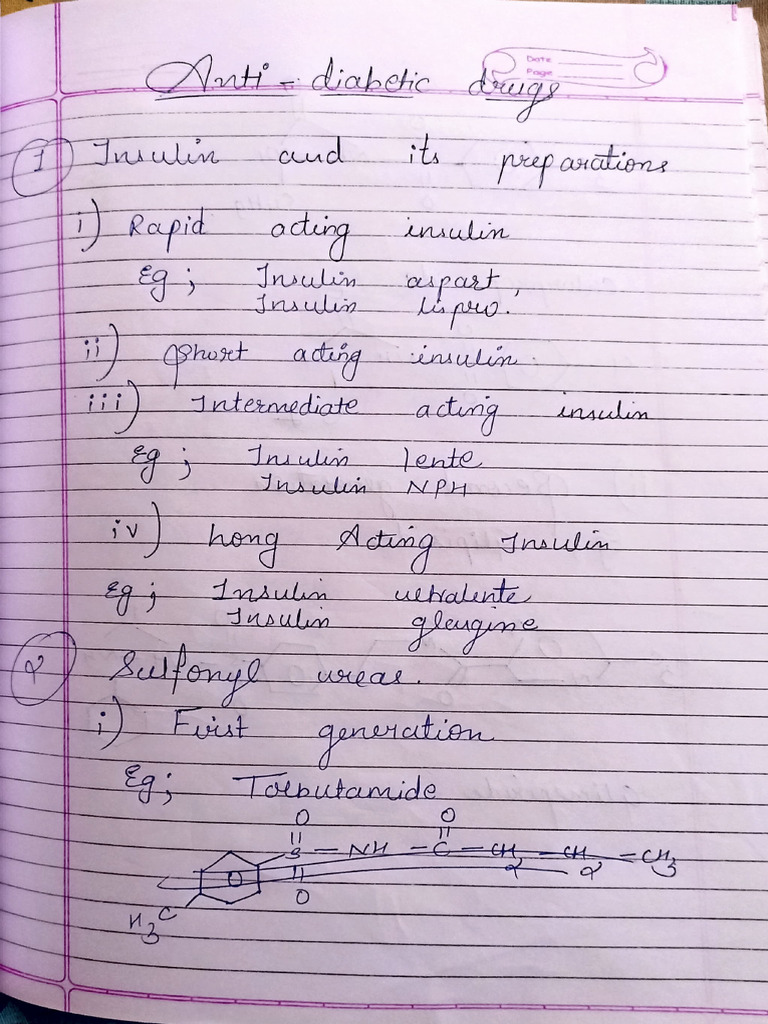 Anti-diabetic drugs
Date
Page
1 Insulin and its preparations
i) Rapid acting insulin
Eg; Insulin aspart,
Insulin lispro.
ii) Short acting insulin.
iii) Intermediate acting insulin
Eg; Insulin lente
Insulin NPH
iv) Long Acting Insulin
Eg; Insulin ultralente
Insulin glargine
2 Sulfonyl ureas.
i) First generation
Eg; Tolbutamide
O O
S - NH - C - CH2 - CH2 - CH3
O
H3C